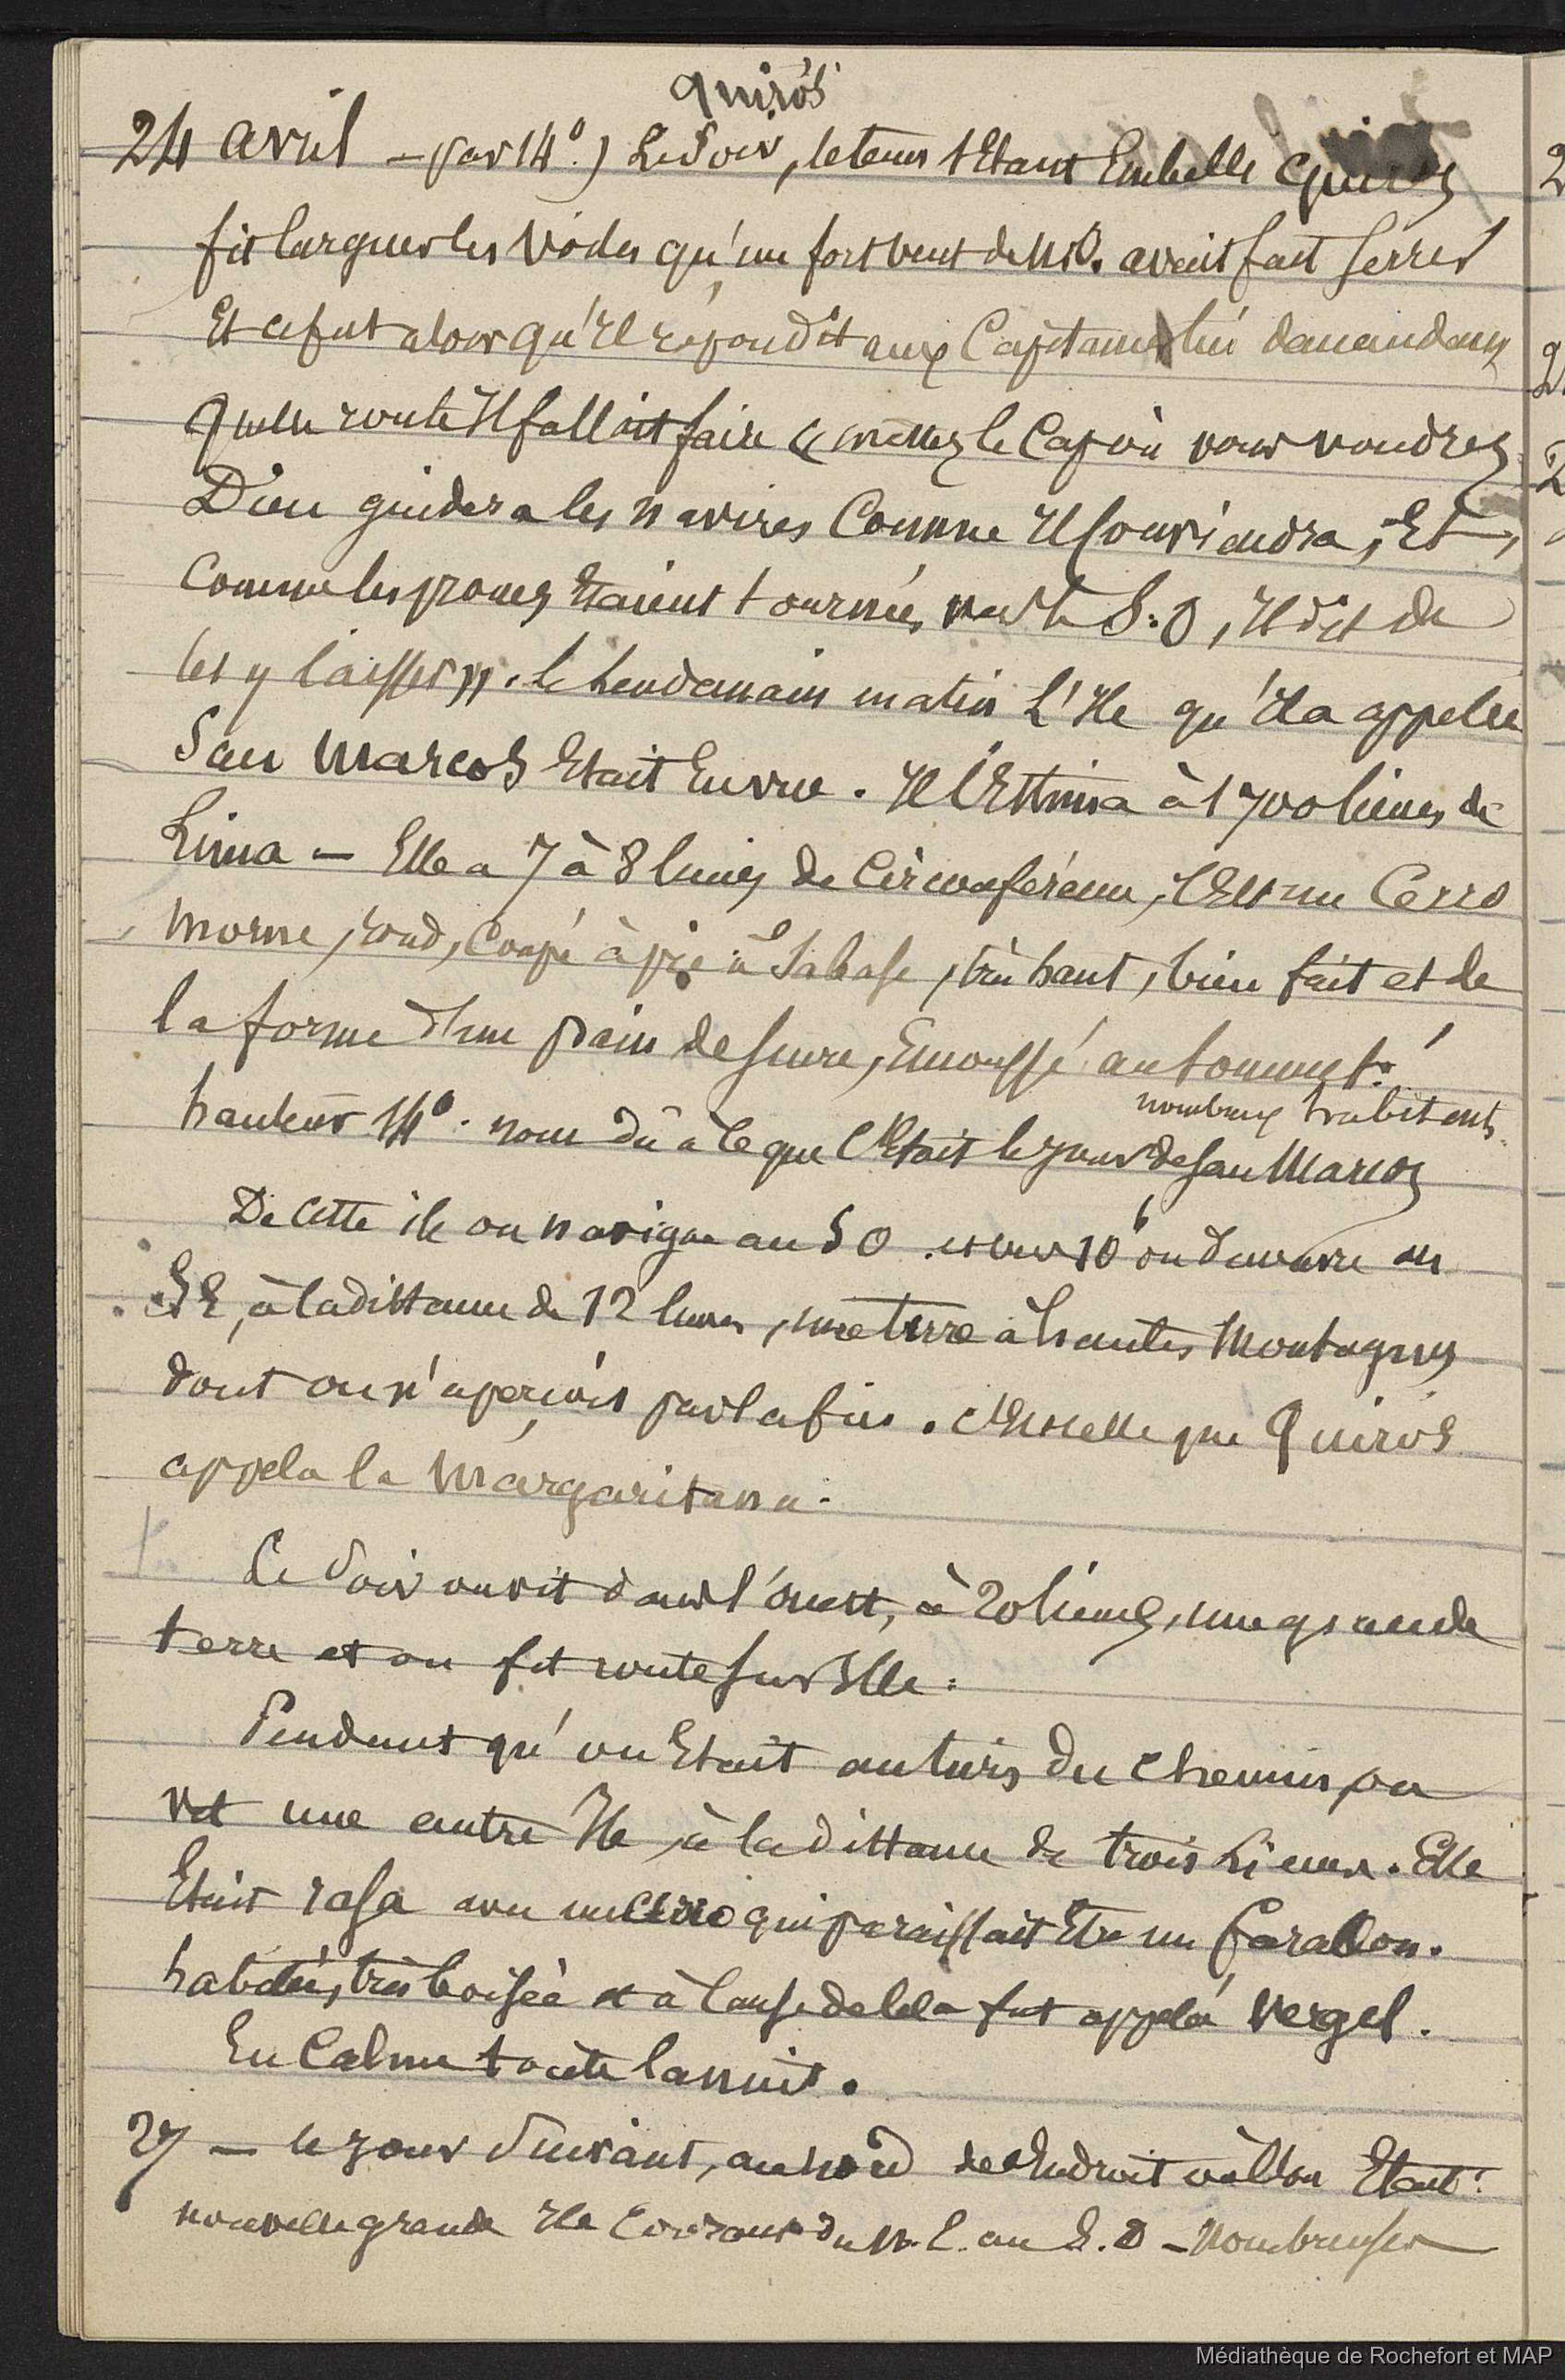 Quirós
24 avril – par 14°.) Le soir, le tems s'étant embelli Quiros
fit larguer les voiles qu'un fort vent de NO. avait fait serrer
Et ce fut alors qu'il répondit aux Capitaines lui demandant
quelle route il fallait faire « mettez le Cap où vous voudrez
Dieu guidera les navires Comme il conviendra, Et,
Comme les proues étaient tournées vers le S.O, il dit de
les y laisser ». le lendemain matin L'île qu'il a appelée
San Marcos était en vue. Il l'estima à 1700 lieues de
Lima – Elle a 7 à 8 lieues de Circonférence, C'est un Cerro
morne, rond, Coupé à pic à sa base, très haut, bien fait et de
la forme d'un pain de sucre, émoussé au sommet.
nombreux habitants.
hauteur 14°. nom dû à ce que c'était le jour de San Marcos
De cette île on navigue au SO et vers 10h on découvre au
SE, à la distance de 12 lieues, une terre à hautes Montagnes
dont on n'aperçoit pas la fin. C'est celle que Quirós
appela la Margaritana.
Le soir on vit dans l'ouest, à 20 lieues, une grande
terre et on fit route sur Elle.
Pendant qu'on était au tiers du chemin, on
vit une autre île, à la distance de trois Lieues. Elle
était rasa avec un Cerro qui paraissait être un farallon.
habitée, très boisée et à Cause de cela fut appelé Vergel.
En Calme toute la nuit.
27 – le jour suivant, au nord de l'endroit où l'on était:
nouvelle grande île Courant du N.E. au S.O – Nombreuses
Médiathèque de Rochefort et MAP